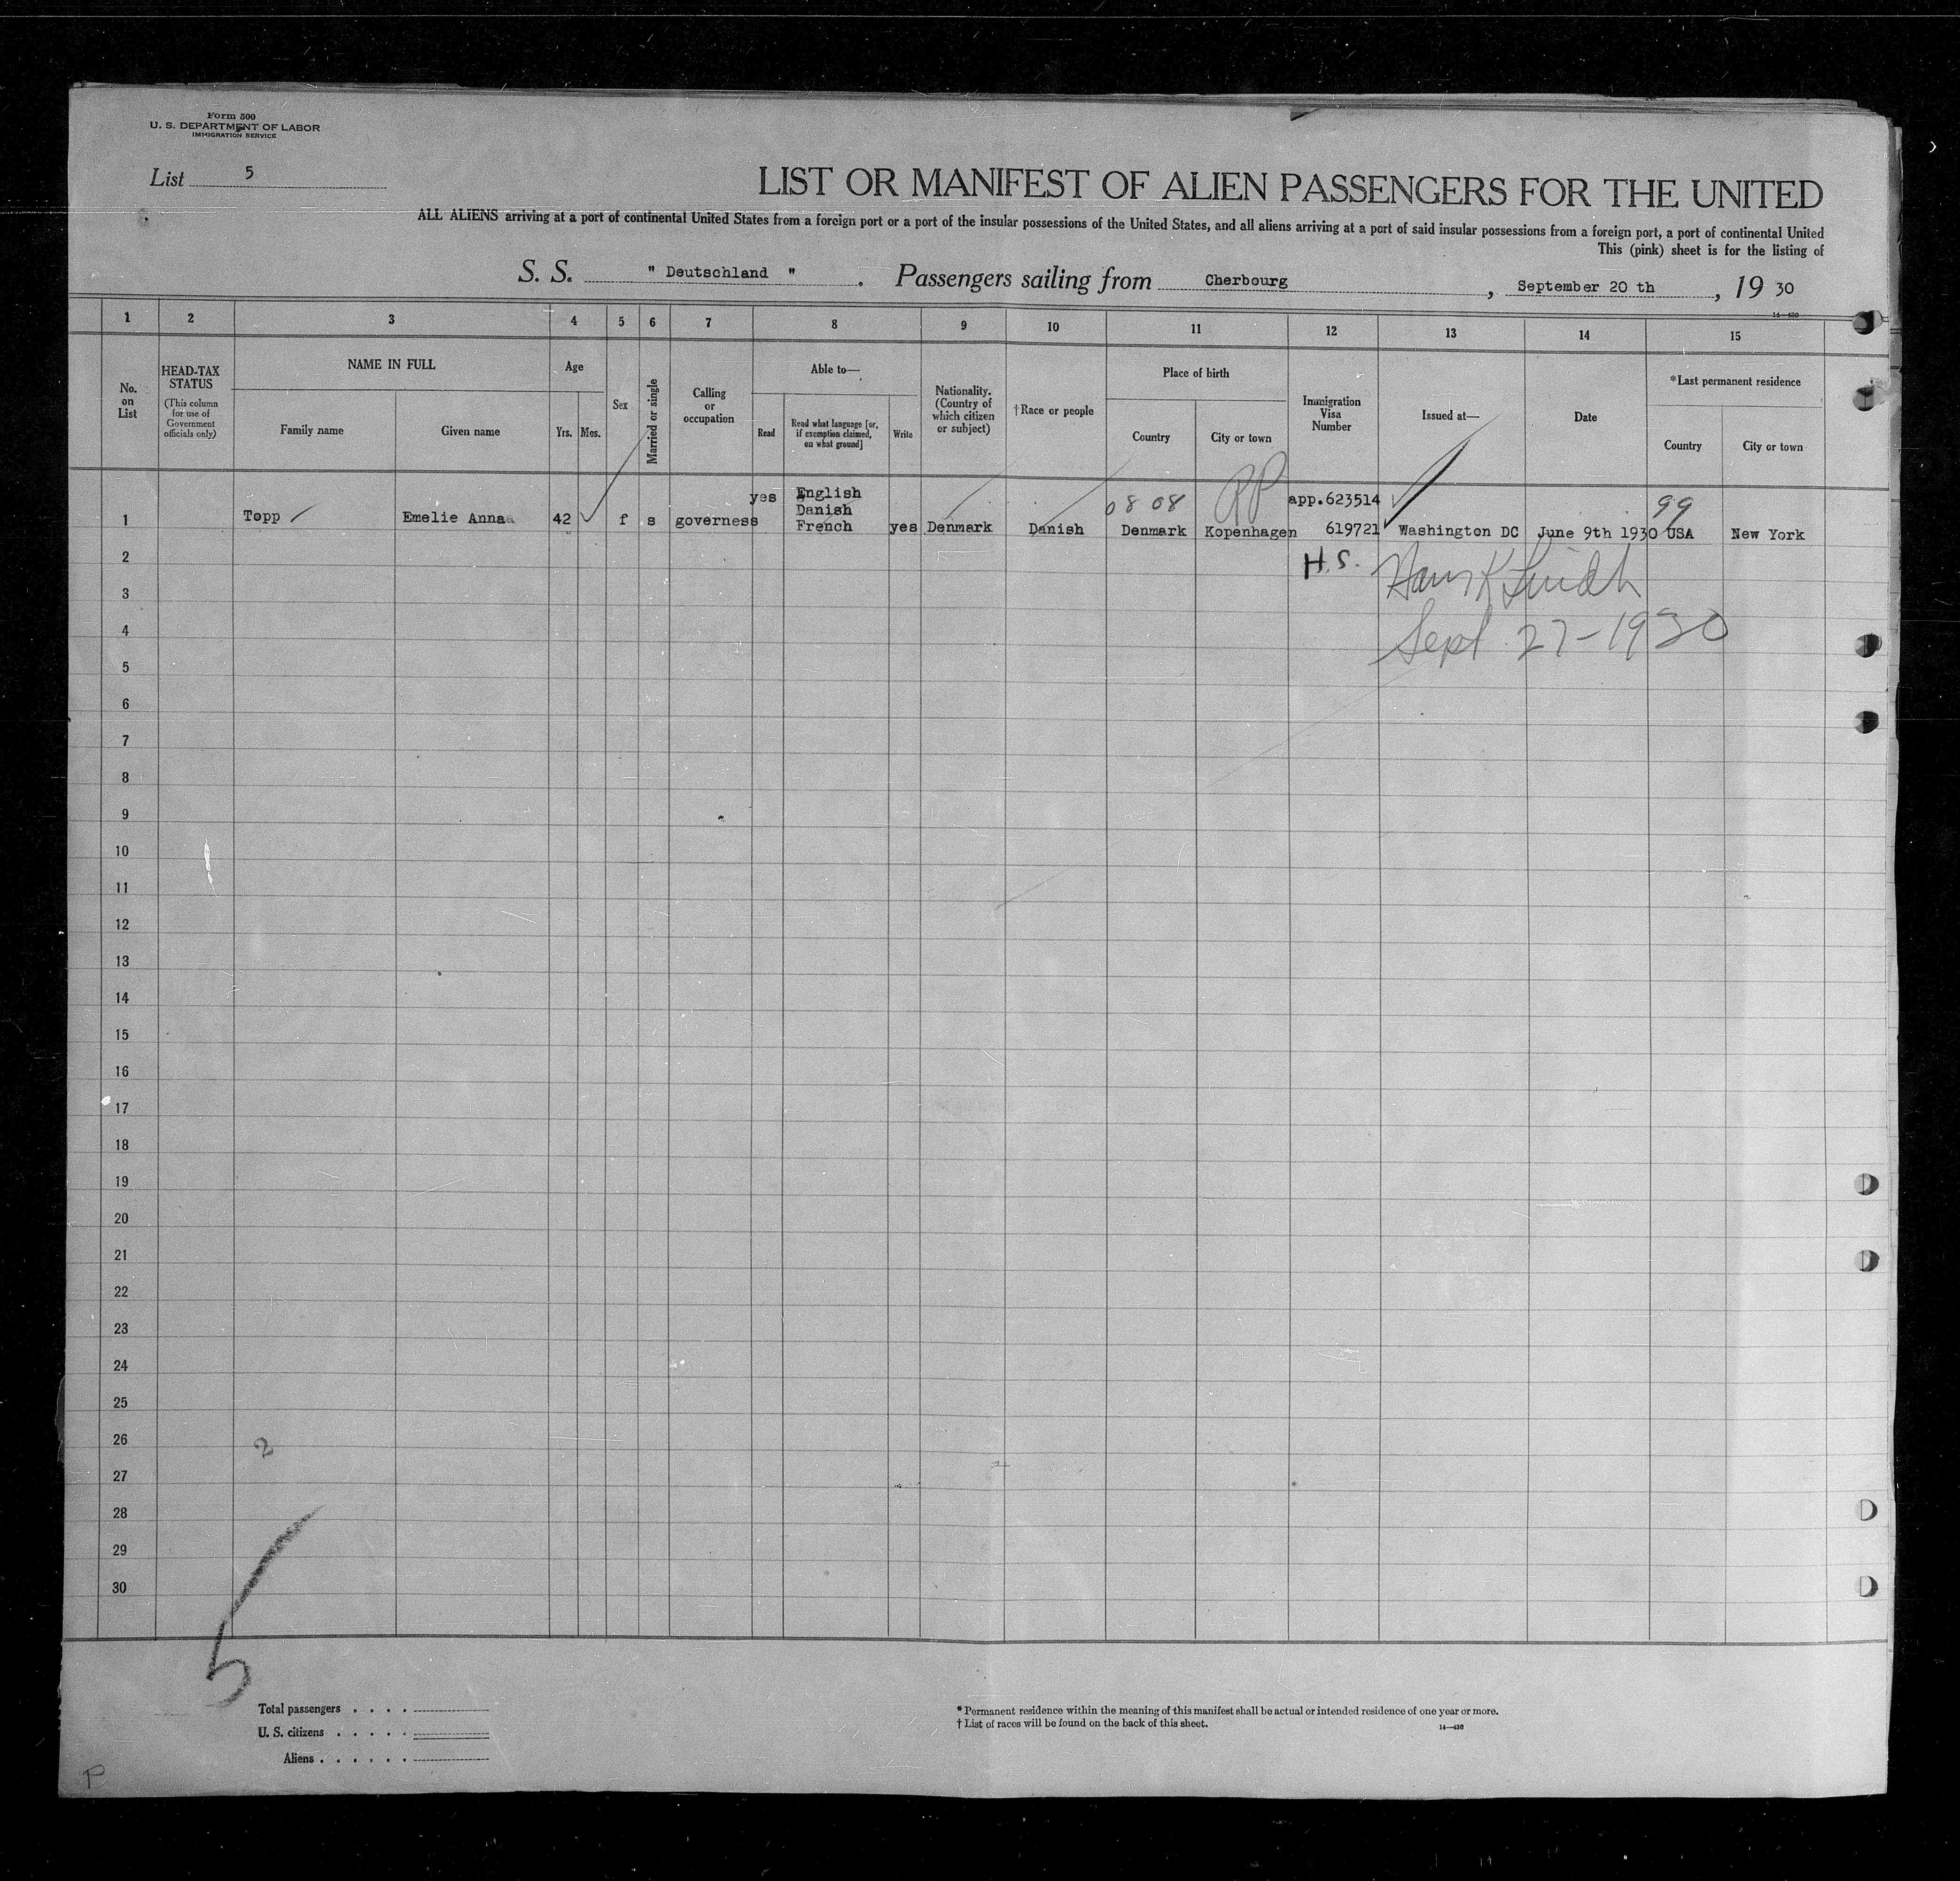 Form 500
U. S. DEPARTMENT OF LABOR
IMMIGRATION SERVICE
List 5
LIST OR MANIFEST OF ALIEN PASSENGERS FOR THE UNITED
ALL ALIENS arriving at a port of continental United States from a foreign port or a port of the insular possessions of the United States, and all aliens arriving at a port of said insular possessions from a foreign port, a port of continental United
This (pink) sheet is for the listing of
S. S. " Deutschland " . Passengers sailing from Cherbourg , September 20 th , 19 30
14—430
1 2 3 4 5 6 7 8 9 10 11 12 13 14 15
No. on List
HEAD-TAX STATUS
(This column for use of Government officials only)
NAME IN FULL
Family name
Given name
Age
Yrs.
Mos.
Sex
Married or single
Calling or occupation
Able to—
Read
Read what language [or, if exemption claimed, on what ground]
Write
Nationality. (Country of which citizen or subject)
†Race or people
Place of birth
Country
City or town
Immigration Visa Number
Issued at—
Date
*Last permanent residence
Country
City or town
1 Topp Emelie Anna 42 f s governess yes English Danish French yes Denmark Danish 08 08 Denmark Kopenhagen app.623514 619721 Washington DC June 9th 1930 99 USA New York
RP
2
H.S.
3
4
Sept 27-1930
5
6
7
8
9
10
11
12
13
14
15
16
17
18
19
20
21
22
23
24
25
26
2
27
28
29
30
5
Total passengers . . . .
U. S. citizens . . . . .
Aliens . . . . . .
* Permanent residence within the meaning of this manifest shall be actual or intended residence of one year or more.
† List of races will be found on the back of this sheet.
14—430
P